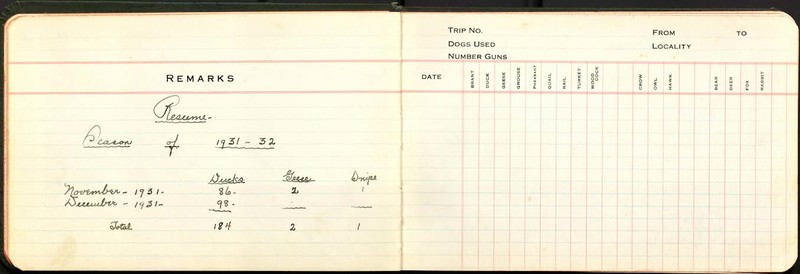 REMARKS
Resume-
Season of 1931-32
Ducks Geese Snipe
November - 1931 - 86- 2 1
December - 1931 - 98-
Total 184 2 1
TRIP NO. FROM TO
DOGS USED LOCALITY
NUMBER GUNS
DATE BRANT DUCK GEESE GROUSE PHEASANT QUAIL RAIL TURKEY WOOD COCK CROW OWL HAWK BEAR DEER FOX RABBIT